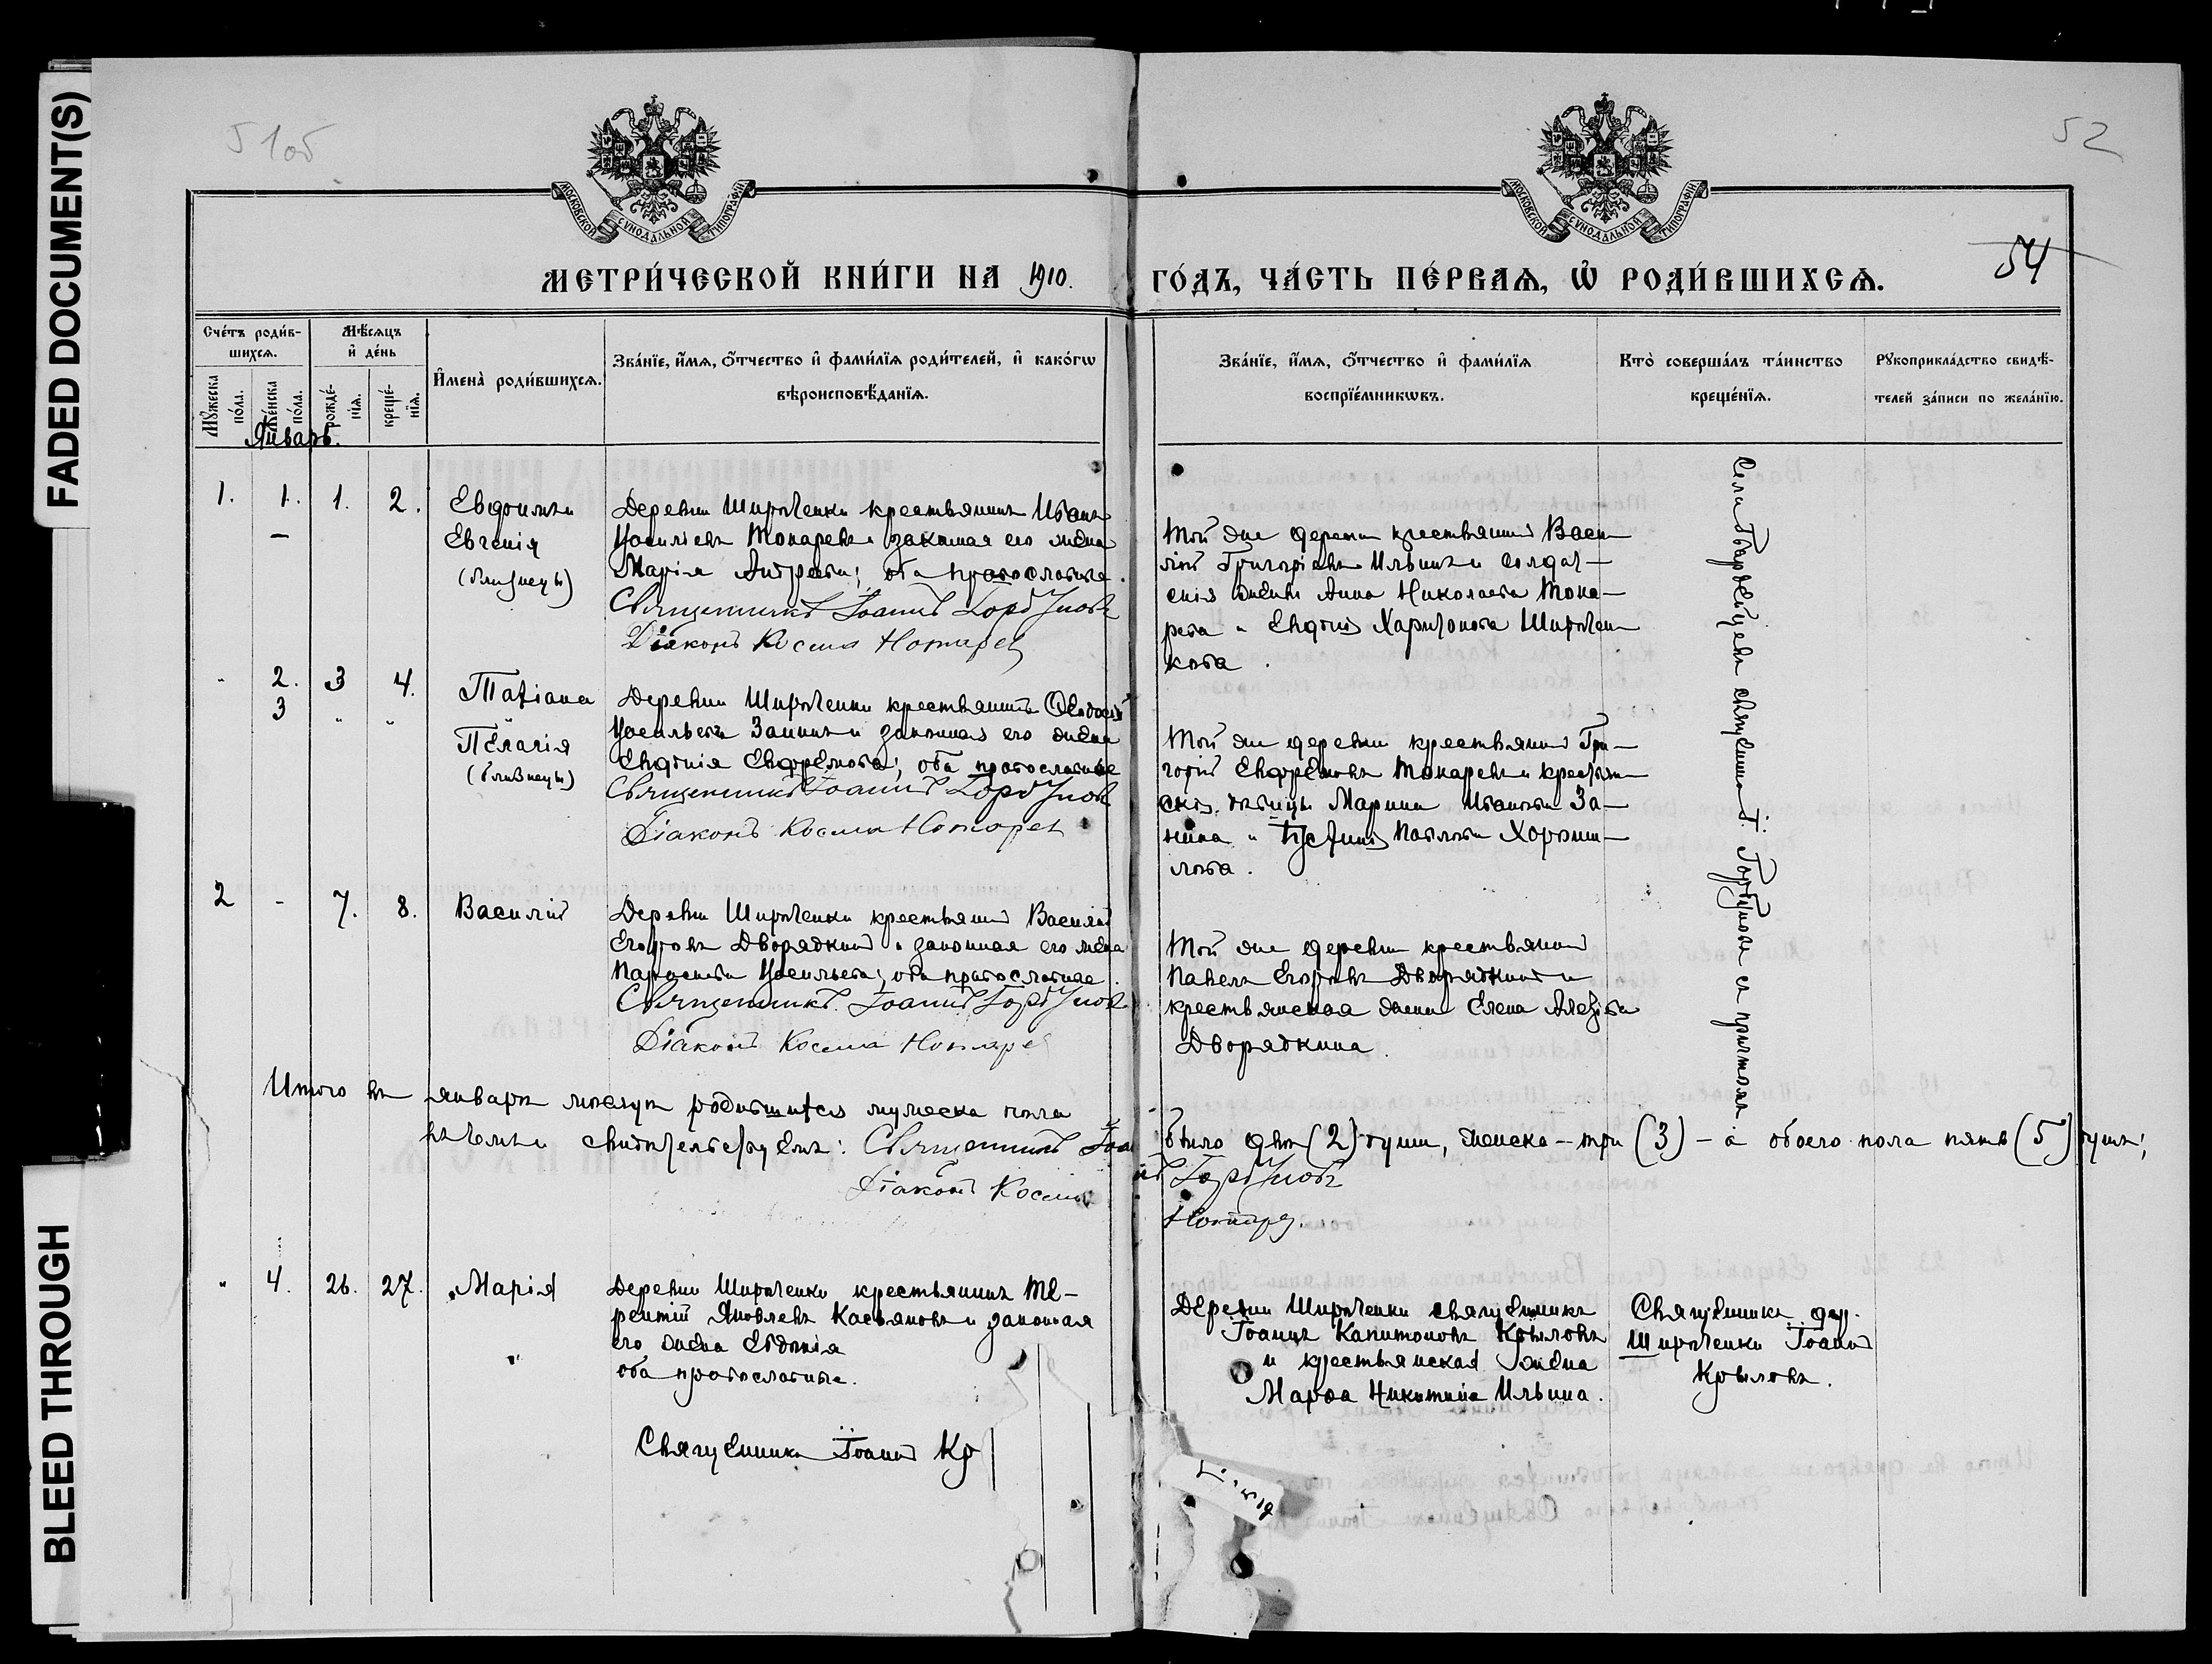 FADED DOCUMENT(S)
BLEED THROUGH
51об
52
54
МОСКОВСКОЙ СѴНОДАЛЬНОЙ ТИПОГРАФІИ
МОСКОВСКОЙ СѴНОДАЛЬНОЙ ТИПОГРАФІИ
МЕТРИ́ЧЕСКОЙ КНИ́ГИ НА 1910. ГО́ДЪ, ЧА́СТЬ ПЕ́РВАѦ, Ѽ РОДИ́ВШИХСѦ.
Сче́тъ роди́в-
шихсѧ.
Мѣ́сѧцъ
и҆ де́нь
Мꙋ́жеска
по́ла.
Же́нска
по́ла.
рожде́-
нїѧ.
креще́-
нїѧ.
И҆мена̀ роди́вшихсѧ.
Зва́нїе, и҆́мѧ, ѻ҆́тчество и҆ фами́лїѧ роди́телей, и҆ како́гѡ
вѣроисповѣ́данїѧ.
Зва́нїе, и҆́мѧ, ѻ҆́тчество и҆ фами́лїѧ
воспрїе́мникѡвъ.
Кто̀ соверша́лъ та́инство
креще́нїѧ.
Рꙋкоприкла́дство свидѣ́-
телей за́писи по жела́нїю.
Январь.
1. 1. 1. 2.
Евфимъ и
Евгенія
(близнецы)
Деревни Широченки крестьянинъ Иванъ
Васильевъ Токаревъ и законная его жена
Марія Андреева; оба православные.
Священникъ Іоаннъ Горбуновъ
Діаконъ Косма Нотарев
Той же деревни крестьянинъ Васи-
лій Григоріевъ Ильинъ и солдат-
скія жены Анна Николаева Тока-
рева и Евдокія Харитонова Широчен-
кова.
2. 3 4.
3 " "
Татіана
Пелагія
(близнецы)
Деревни Широченки крестьянинъ Ѳеодосій
Васильевъ Занинъ и законная его жена
Евдокія Евфремова; оба православные
Священникъ Іоаннъ Горбуновъ
Діаконъ Косма Нотарев
Той же деревни крестьянинъ Гри-
горій Евфремовъ Токаревъ и крестьян-
скія дѣвицы Марина Иванова За-
нина и Павлова Хорши-
лова.
2 - 7. 8.
Василій
Деревни Широченки крестьянинъ Василій
Егоровъ Дворядкинъ и законная его жена
Васильева; оба православные.
Священникъ Іоаннъ Горбуновъ
Діаконъ Косма Нотарев
Той же деревни крестьянинъ
Павелъ Егоровъ Дворядкинъ и
крестьянская жена Елена
Дворядкина.
Села священникъ І. Горбуновъ съ причтомъ
Итого въ январѣ мѣсяцѣ родившихся мужеска пола было двѣ (2) души, женска - три (3) - а обоего пола пять (5) душъ;
въ чемъ и свидѣтельствуемъ: Священникъ Іоаннъ Горбуновъ
Діаконъ Косма Нотарев.
" 4. 26. 27.
Марія
Деревни Широченки крестьянинъ Те-
рентій Яковлевъ Касьяновъ и законная
его жена Евдокія
оба православные.
Священникъ Іоаннъ Кр
Деревни Широченки священникъ
Іоаннъ Капитоновъ Крыловъ
и крестьянская жена
Марѳа Никитина Ильина.
Священникъ дер.
Широченки Іоаннъ
Крыловъ.